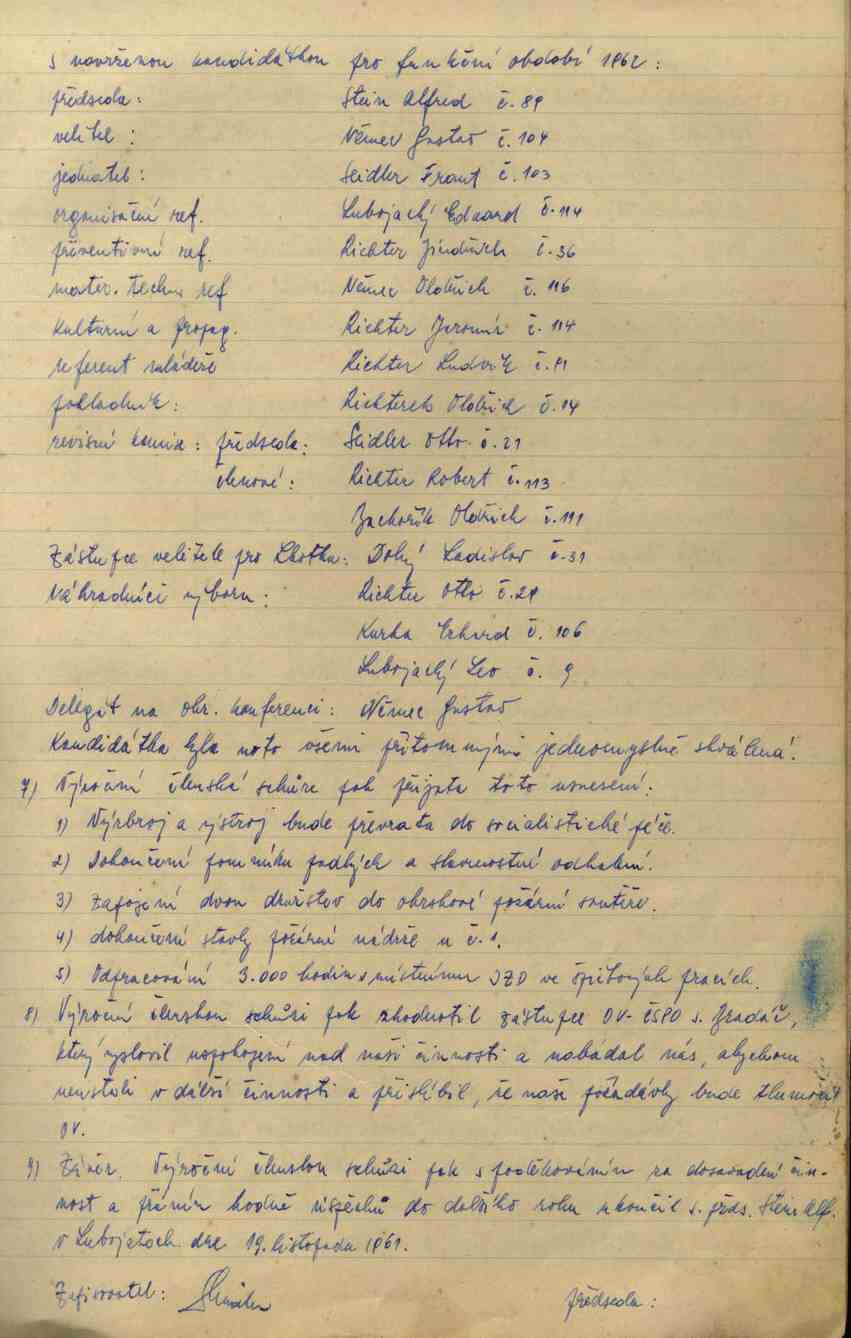 s navrženou kandidátkou pro funkční období 1962:
předseda: Stein Alfred č. 89
velitel: Němec Gustav č. 104
jednatel: Seidler Frant č. 103
organisační ref. Lubojacký Eduard č. 114
preventivní ref. Richter Jindřich č. 36
mater. techn. ref Němec Oldřich č. 116
kulturní a propag. Richter Jaromír č. 114
referent mládeže Richter Ludvík č. 91
pokladník: Richterek Oldřich č. 14
revisní komise: předseda: Seidler Otto č. 21
členové: Richter Robert č. 113
Oldřich č. 111
Zástupce velitele pro Lhotku: Ladislav č. 31
Náhradníci výboru: Richter Otto č. 29
Kurka Erhard č. 106
Lubojacký Leo č. 9
Delegát na okr. konferenci: Němec Gustav
Kandidátka byla na to všemi přítomnými jednomyslně schválená.
7) Výroční členská schůze pak přijata toto usnesení:
1) Výzbroj a výstroj bude převzata do socialistické péče.
2) Dokončení pomníku padlých a slavnostní odhalení.
3) Zapojení dvou družstev do okrskové požární soutěže.
4) dokončení stavby požární nádrže u č. 1.
5) Odpracování 3.000 hodin v místním JZD ve špičkových pracích.
8) Výroční členskou schůzi pak zhodnotil zástupce OV-ČSPO s. Hradáč,
který vyslovil uspokojení nad naší činnosti a nabádal nás, abychom
neustali v další činnosti a přislíbil, že naše požadavky bude tlumočit
OV.
9) Závěr. Výroční členskou schůzi pak s poděkováním za dosavadní čin-
nost a přáním hodně úspěchů do dalšího roku ukončil s. předs. Stein Alf.
v Lubojatech dne 19. listopadu 1961.
Zapisovatel: předseda: